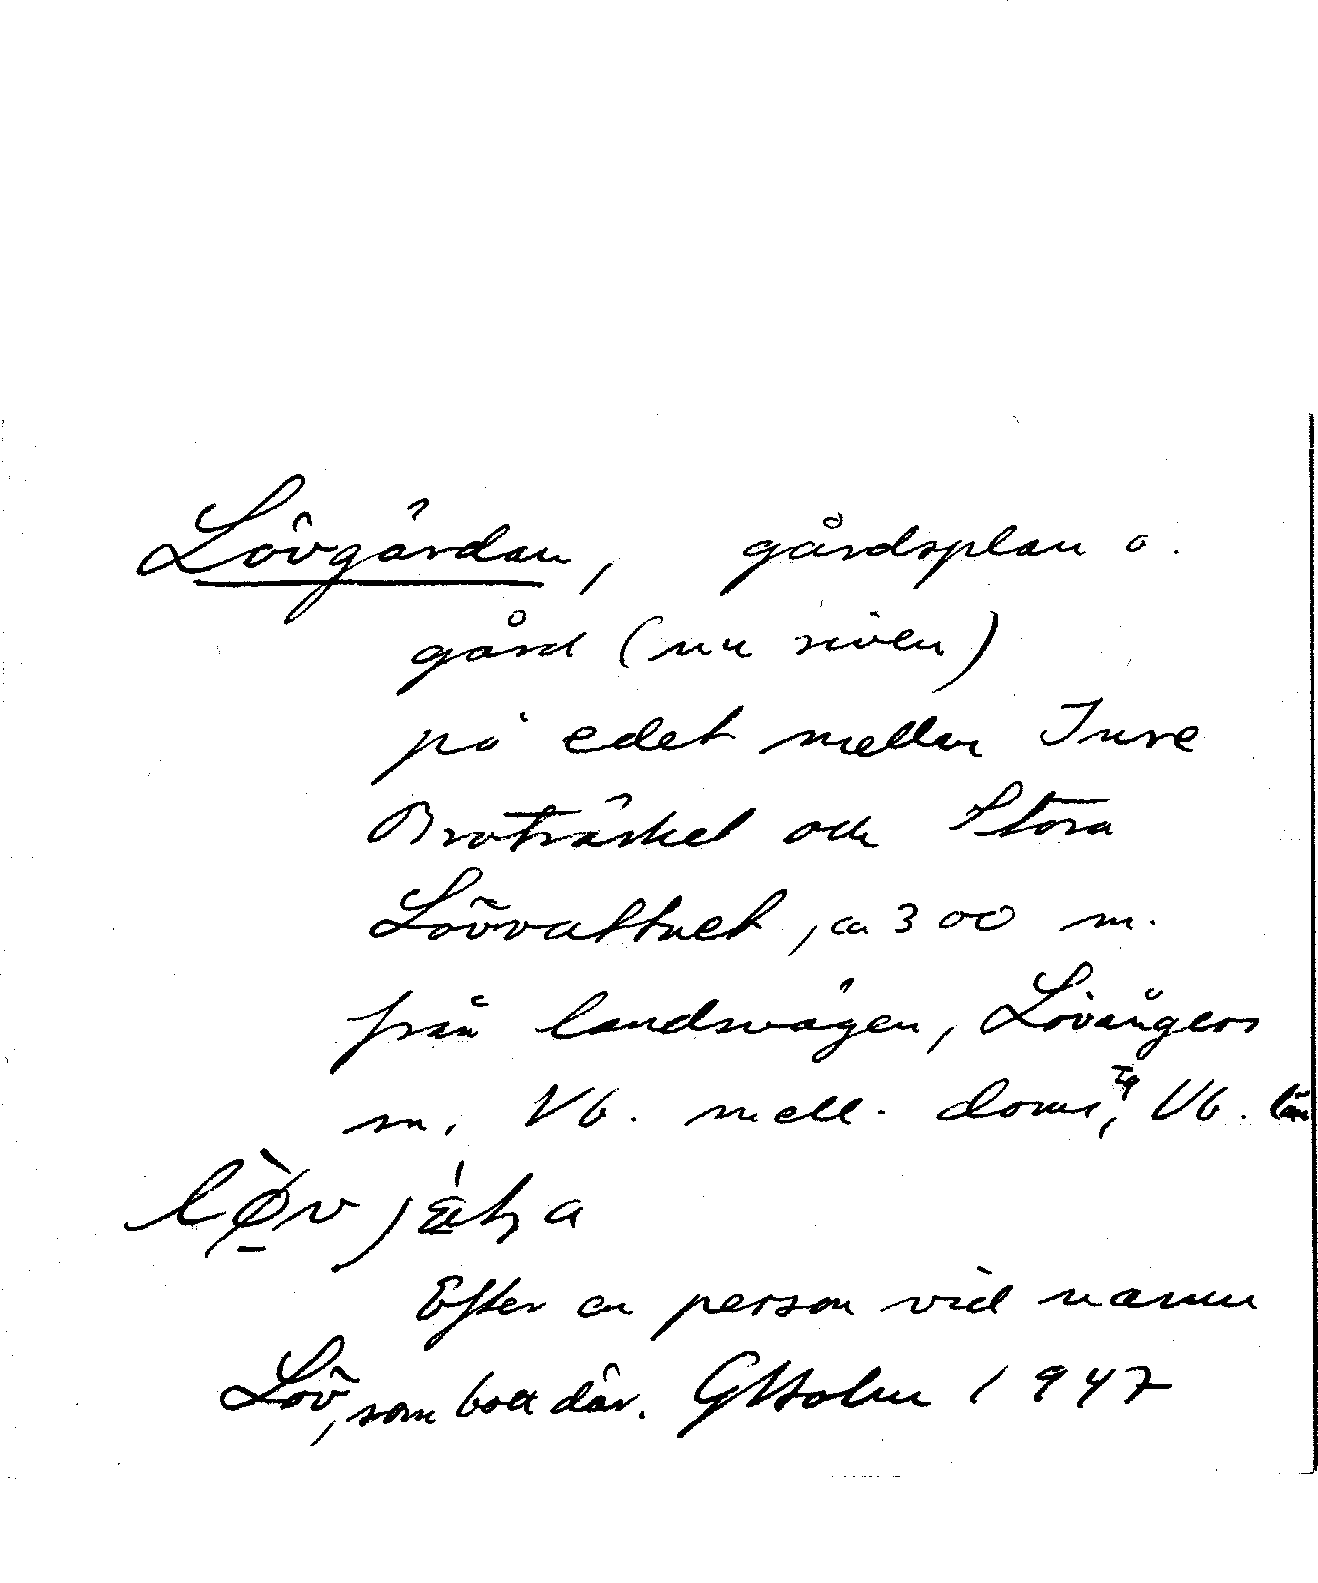 Lövgärdan, gårdsplan o.
gård (nu riven)
på edet mellan Inre
Broträsket och Stora
Lövvattnet, ca 300 m.
från landsvägen, Lövångers
sn, Vb. mell. doms, Vb. län
Efter en person vid namn
Löv, som bott där. GHolm 1947